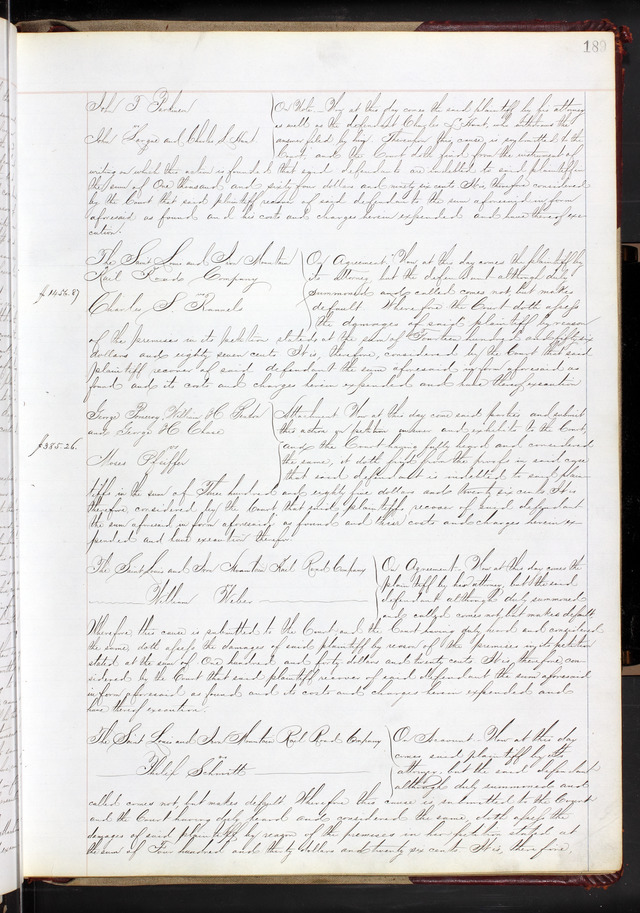 189
John T.
John and Charles S.
On Note. Now at this day comes the said plaintiff by his attorney
as well as the defendant Charles S. and withdraws the
answer filed by him. Thereupon this cause is submitted to the
Court, and the Court doth find from the instrument of
writing on which this action is founded that said defendants are indebted to said plaintiff in
the sum of One thousand and sixty four dollars and ninety six cents It is therefore considered
by the Court that said plaintiff recover of said defendants the sum aforesaid in form
aforesaid as found and his costs and charges herein expended and have thereof exe-
cution.
The Saint Louis and Iron Mountain
Rail Road Company
vs
Charles S.
$1456.87
On Agreement. Now at this day comes the plaintiff by
its attorney but the defendant although duly
summoned and called comes not, but makes
default Wherefore the Court doth assess
the damages of said plaintiff by reason
of the premises in its petition stated at the sum of Fourteen hundred and fifty six
dollars and eighty seven cents It is, therefore, considered by the Court that said
plaintiff recover of said defendant the sum aforesaid in form aforesaid as
found and its costs and charges herein expended and have thereof execution
George William H.
and George H. Chase
vs
Moses Pfeiffer
$385.26.
Attachment Now at this day come said parties and submit
this action on petition answer and exhibits to the Court,
and the Court having fully heard and considered
the same, it doth find from the proofs in said case
that said defendant is indebted to said plain-
tiffs in the sum of Three hundred and eighty five dollars and twenty six cents It is
therefore considered by the Court that said plaintiffs recover of said defendant
the sum aforesaid in form aforesaid as found and their costs and charges herein ex-
pended and have execution therefor
The Saint Louis and Iron Mountain Rail Road Company
vs
William
On Agreement. Now at this day comes the
plaintiff by her attorney but the said
defendant although duly summoned
and called comes not, but makes default,
Wherefore this cause is submitted to the Court and the Court having duly heard and considered
the same doth assess the damages of said plaintiff by reason of the premises in its petition
stated at the sum of One hundred and forty dollars and twenty cents It is therefore con-
sidered by the Court that said plaintiff recover of said defendant the sum aforesaid
in form aforesaid as found and its costs and charges herein expended and
have thereof execution.
The Saint Louis and Iron Mountain Rail Road Company
vs
Philip
On Account. Now at this day
comes said plaintiff by its
attorney, but the said defendant
although duly summoned and
called comes not, but makes default Wherefore this cause is submitted to the Court
and the Court having duly heard and considered the same, doth assess the
damages of said plaintiff by reason of the premises in her petition stated at
the sum of Four hundred and thirty dollars and twenty six cents It is, therefore,